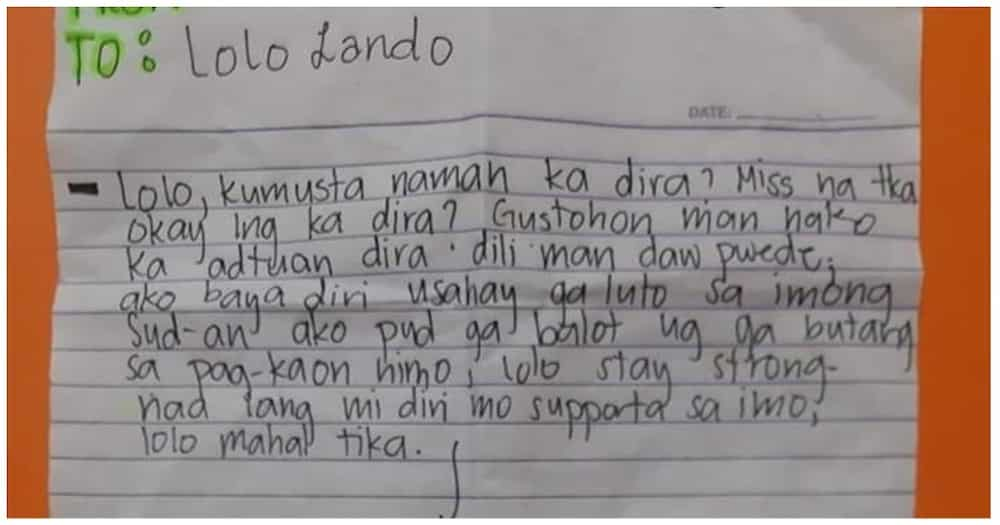 TO: Lolo Lando
DATE:
- Lolo, kumusta naman ka dira? Miss na tka
okay ing ka dira? Gustohon man nako
ka adtuan dira. dili man daw pwede;
ako baya diri usahay ga luto sa imong
Sud-an ako pud ga balot ug ga butang
sa pag-kaon nimo; lolo stay strong
naa lang mi diri mo supporta sa imo;
lolo mahal tika.